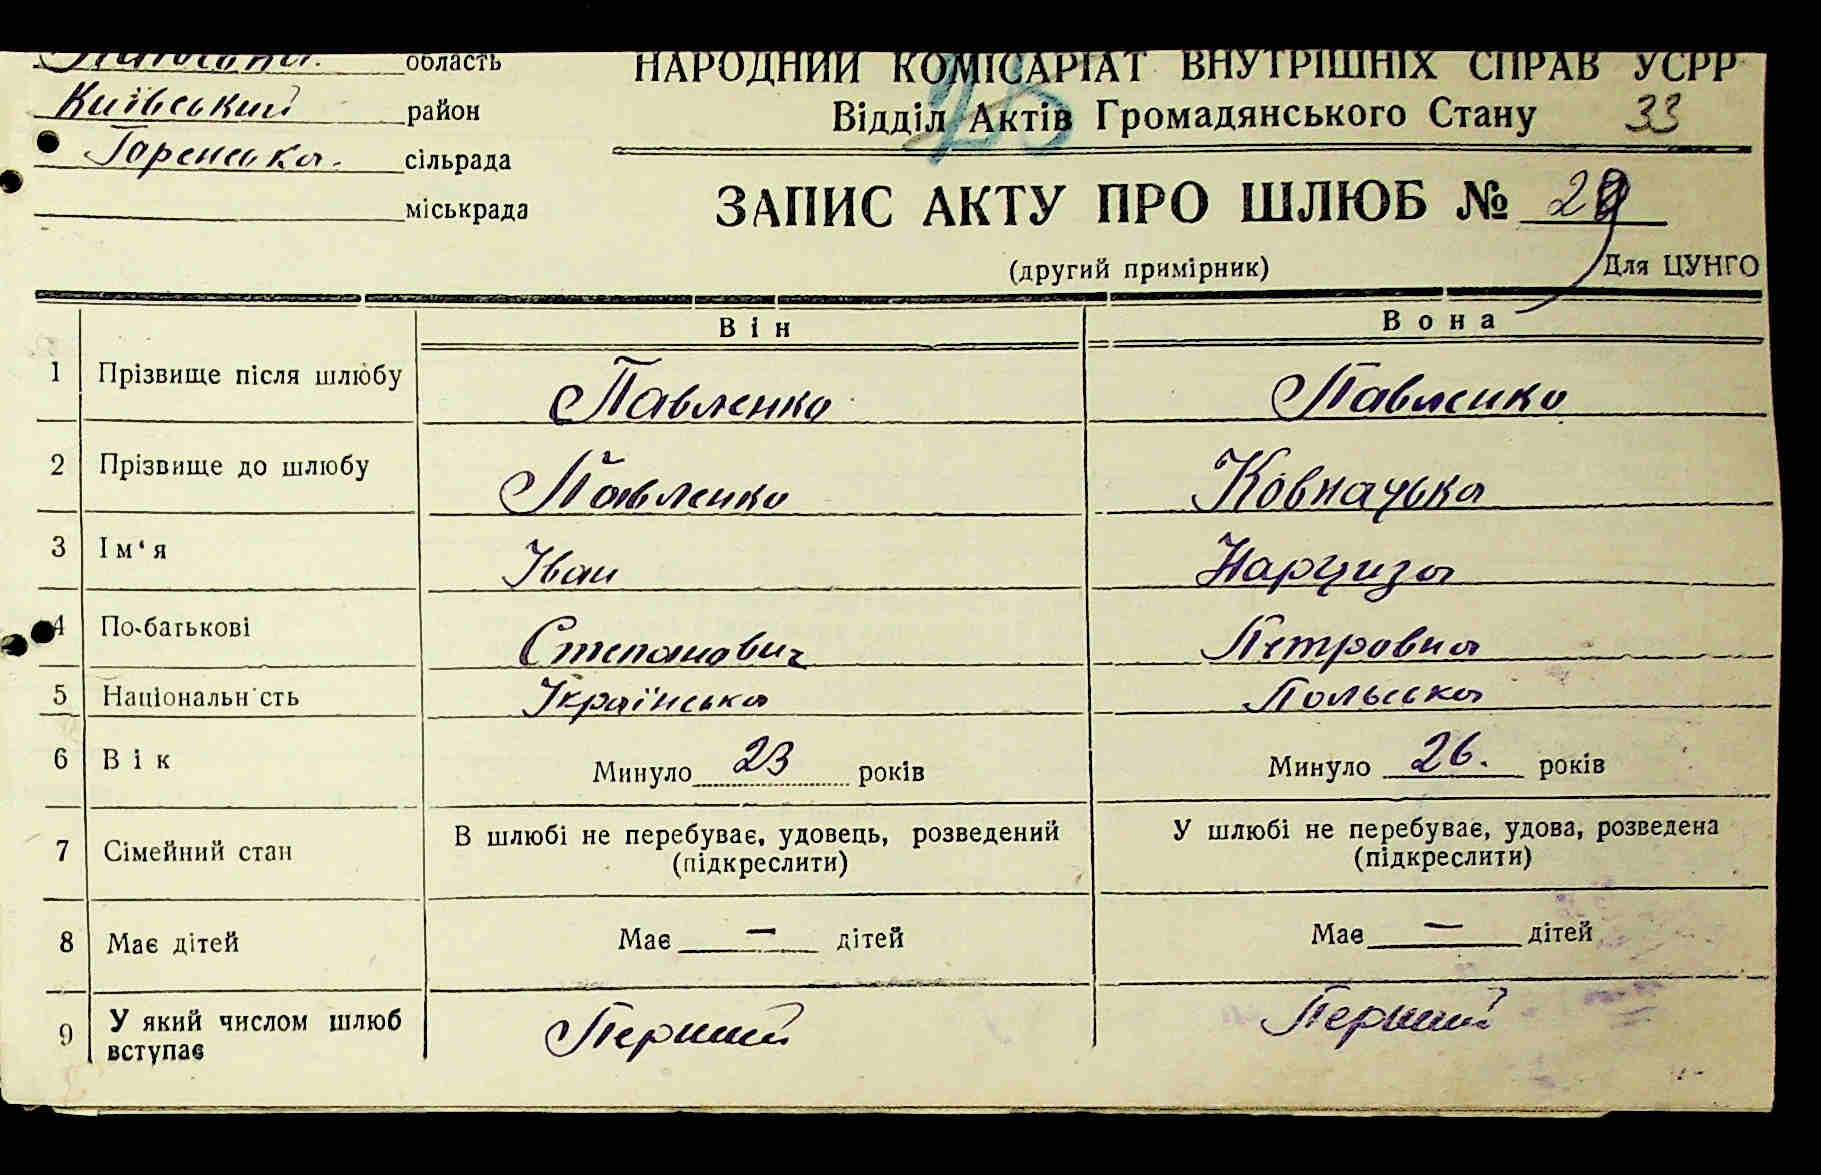 область
НАРОДНИЙ КОМІСАРІАТ ВНУТРІШНІХ СПРАВ УСРР
Київський район
Відділ Актів Громадянського Стану 33
25
Горенська сільрада
міськрада
ЗАПИС АКТУ ПРО ШЛЮБ № 29
(другий примірник)
Для ЦУНГО
Він Вона
1 Прізвище після шлюбу Павленко Павленко
2 Прізвище до шлюбу Павленко
3 Ім'я Іван Нарциза
4 По-батькові Степанович Петровна
5 Національн сть Українська Польська
6 Вік Минуло 23 років Минуло 26. років
7 Сімейний стан В шлюбі не перебуває, удовець, розведений У шлюбі не перебуває, удова, розведена
(підкреслити) (підкреслити)
8 Має дітей Має — дітей Має — дітей
9 У який числом шлюб вступає Перший Перший